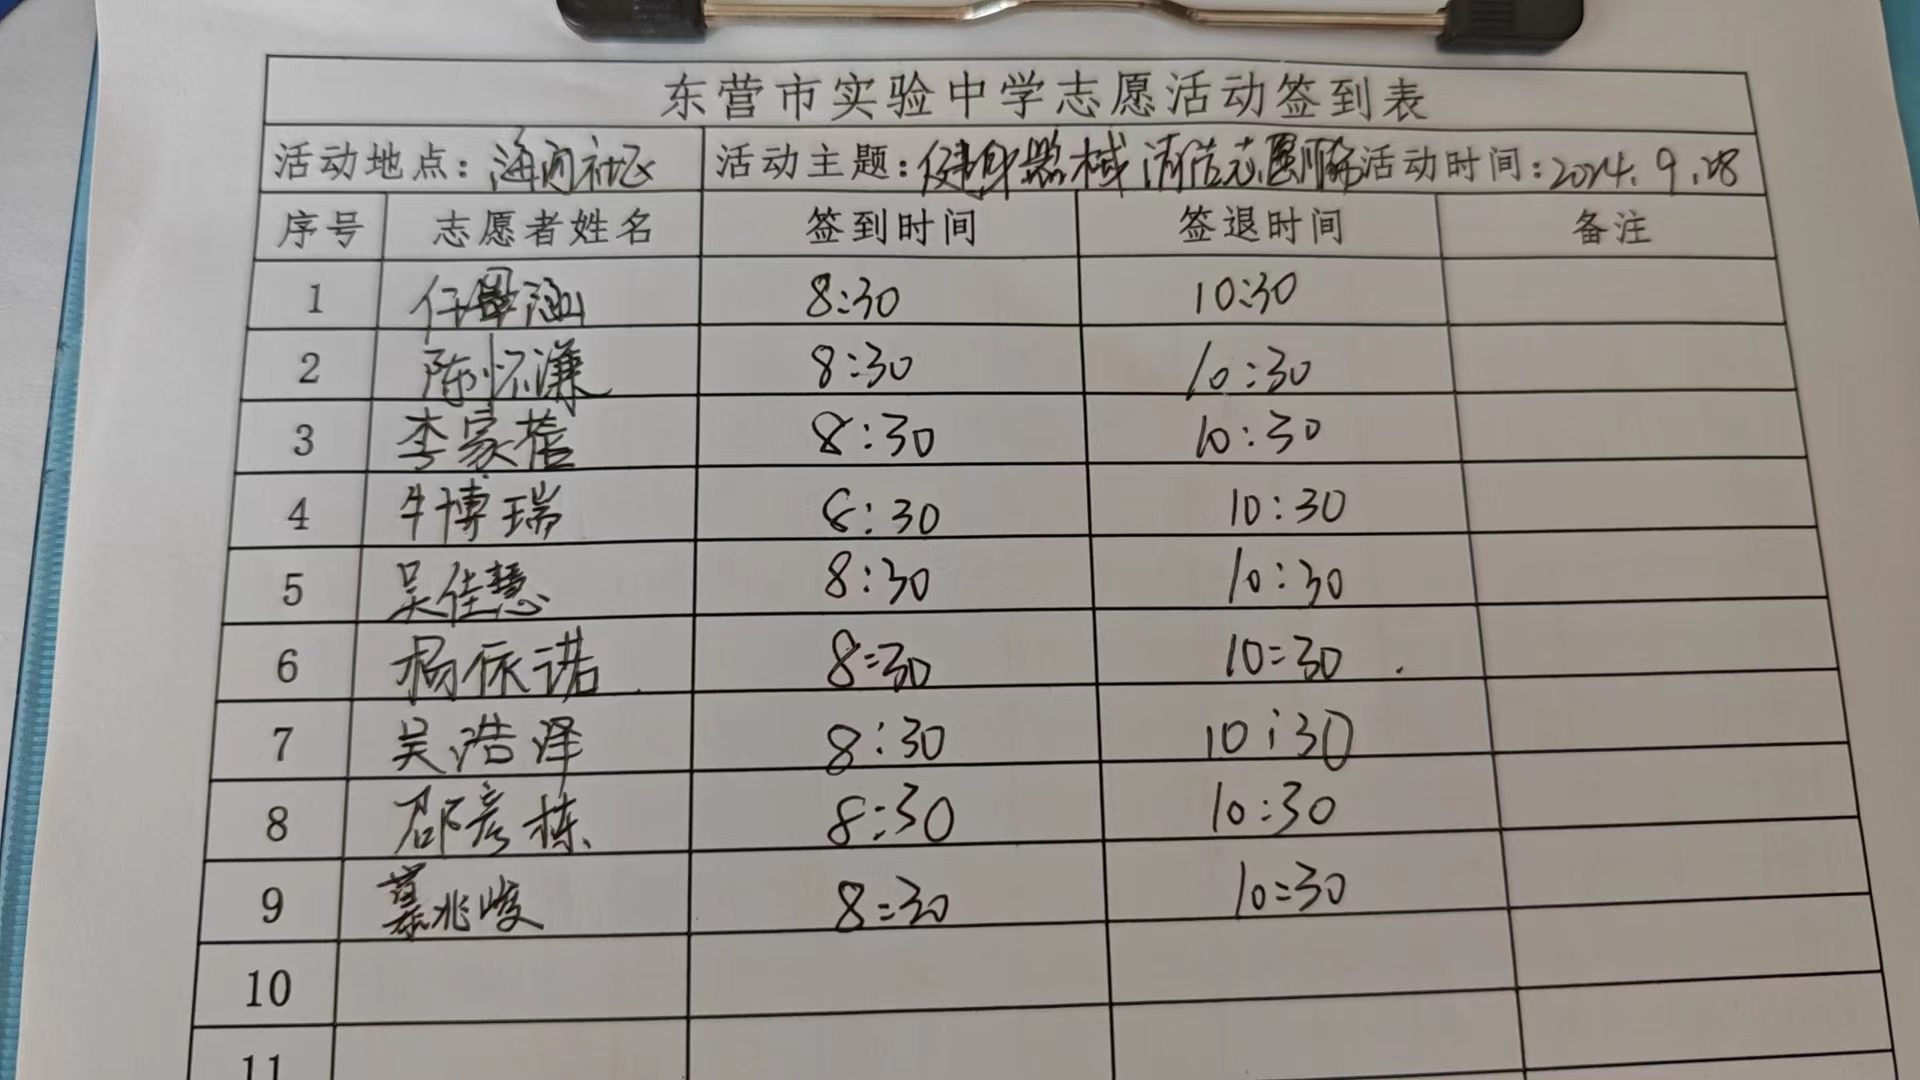 东营市实验中学志愿活动签到表
活动地点:海河社区 活动主题:健身器械清洁志愿服务 活动时间:2024.9.28
序号 志愿者姓名 签到时间 签退时间 备注
1 任墨涵 8:30 10:30
2 陈怀濂 8:30 10:30
3 李家蓓 8:30 10:30
4 牛博瑞 8:30 10:30
5 吴佳慧 8:30 10:30
6 杨依诺 8:30 10:30
7 吴浩泽 8:30 10:30
8 邵彦栋 8:30 10:30
9 綦兆峻 8:30 10:30
10
11